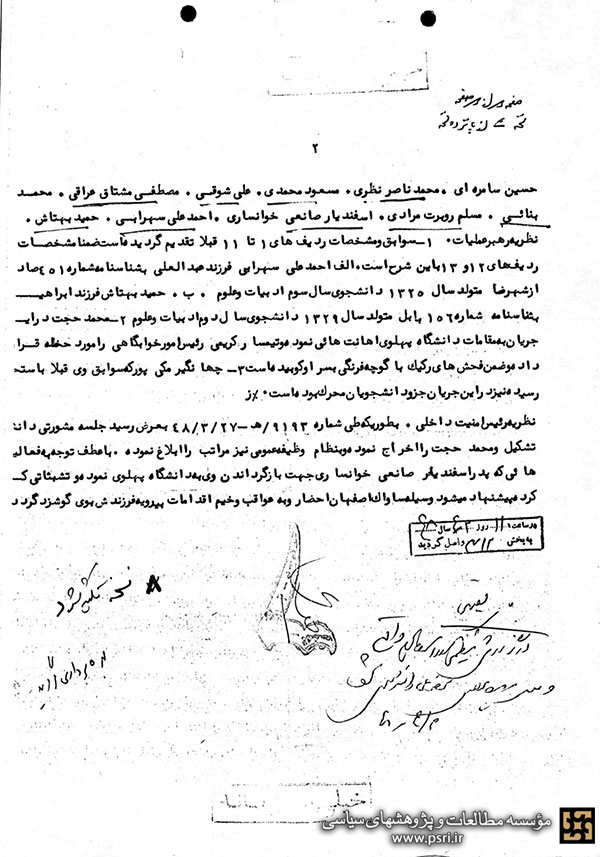 صفحه
نسخه ... از پانزده نسخه
۲
حسین سامره ای ۰ محمد ناصر نظری ۰ مسعود محمدی ۰ علی شوقی ۰ مصطفی مشتاق عراقی ۰ محمد
بنائی ۰ مسلم روبرت مرادی ۰ اسفندیار صانعی خوانساری ۰ احمد علی سهرابی ۰ حمید بهتاش ۰
نظریه رهبر عملیات ۰ ۱ـ سوابق و مشخصات ردیف های ۱ تا ۱۱ قبلا تقدیم گردیده است ضمنا مشخصات
ردیف های ۱۲ و ۱۳ باین شرح است ۰ الف احمد علی سهرابی فرزند عبد العلی بشناسنامه شماره ۴۵۱ صاد
از شهرضا متولد سال ۱۳۲۵ دانشجوی سال سوم ادبیات و علوم ۰ ب ۰ حمید بهتاش فرزند ابراهیم
بشناسنامه شماره ۱۵۶ بابل متولد سال ۱۳۲۹ دانشجوی سال دوم ادبیات و علوم ۲ـ محمد حجت در این
جریان به مقامات دانشگاه پهلوی اهانت هائی نموده و تیمسار کریمی رئیس امور خوابگاهی را مورد حمله قرا
داده و ضمن فحش های رکیک با گوجه فرنگی بسر او کوبیده است ۳ـ جهانگیر مکی پور که سوابق وی قبلا باستح
رسیده نیز در این جریان جزو دانشجویان محرک بوده است ۰
نظریه رئیس امنیت داخلی ۰ بطوریکه طی شماره ۹۱۹۳/هـ ـ ۴۸/۳/۲۷ بعرض رسید جلسه مشورتی دانشـ
تشکیل و محمد حجت را اخراج نموده و بنظام وظیفه عمومی نیز مراتب را ابلاغ نموده ۰ با عطف توجه به فعالیت
هائی که پدر اسفندیار صانعی خوانساری جهت بازگرداندن وی به دانشگاه پهلوی نموده و تشبثاتی کـ
کرده پیشنهاد میشود وسیله ساواک اصفهان احضار و به عواقب وخیم اقدامات بیرویه فرزندش بوی گوشزد گردد
در ساعت ۱۱ روز ... سال
به بخش ۳۱۲ واصل گردید
۸ نسخه تکثیر شود
خیلی
مؤسسه مطالعات و پژوهشهای سیاسی
www.psri.ir